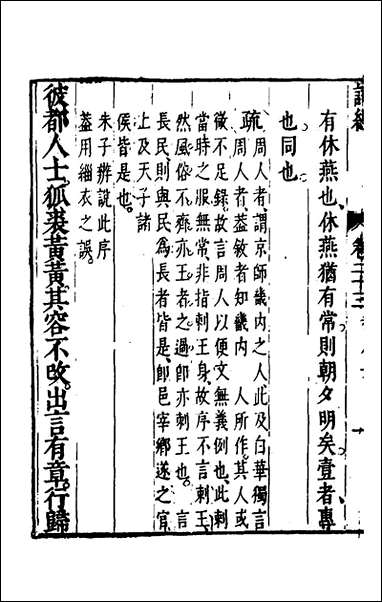 卷二十三
有休燕也、休燕猶有常、則朝夕明矣、壹者、專
也同也、
疏周人者、謂京師畿內之人、此及白華獨言
周人者、蓋敘者知畿內　人所作、其人或
微不足錄、故言周人以便文無義例也、此刺
當時之服無常、非指刺王身、故序不言刺王、
然風俗不齊、亦王者之過、卽亦刺王也。　言
長民、則與民爲長者皆是、卽邑宰鄉遂之官、
上及天子諸
侯皆是也。
朱子辨說此序
蓋用緇衣之誤。
彼都人士。狐裘黃黃。其容不改。出言有章。行歸